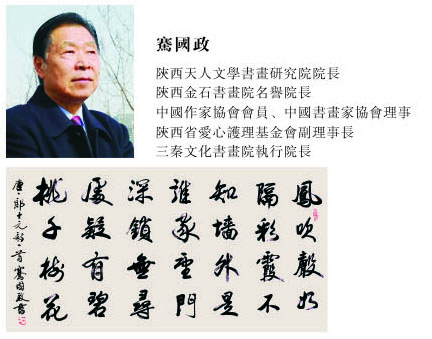 騫國政
陝西天人文學書畫研究院院長
陝西金石書畫院名譽院長
中國作家協會會員、中國書畫家協會理事
陝西省愛心護理基金會副理事長
三秦文化書畫院執行院長
鳳吹聲如
隔彩霞不
知墻外是
誰家重門
深鎖無尋
處疑有碧
桃千樹花
唐·郎士元詩一首 騫國政書